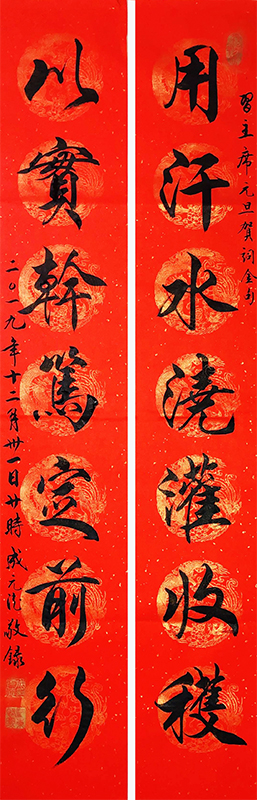 習主席元旦賀詞金句
用汗水澆灌收穫
以實幹篤定前行
二〇一九年十二月卅一日廿時
敬錄